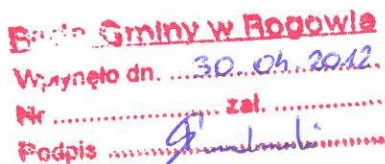 Rada Gminy w Rogowie
Wpłynęło dn. 30.04.2012.
Nr ............ zał. ............
Podpis ............